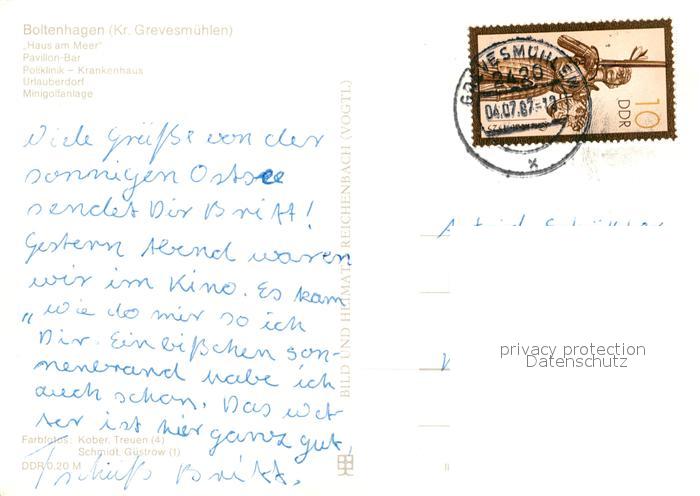 Boltenhagen (Kr. Grevesmühlen)
„Haus am Meer"
Pavillon-Bar
Poliklinik – Krankenhaus
Urlauberdorf
Minigolfanlage
Viele Grüße von der
sonnigen Ostsee
sendet Dir Britt!
Gestern Abend waren
wir im Kino. Es kam
„Wie do mir so ich
Dir. Ein bißchen son-
nenbrand habe ich
auch schon. Das wet-
ter ist hier ganz gut,
Tschüß Britt.
Farbfotos: Kober, Treuen (4)
Schmidt, Güstrow (1)
DDR 0,20 M
BILD UND HEIMAT REICHENBACH (VOGTL)
GREVESMÜHLEN
2420
04.07.87-12
10
DDR
Astrid
privacy protection
Datenschutz